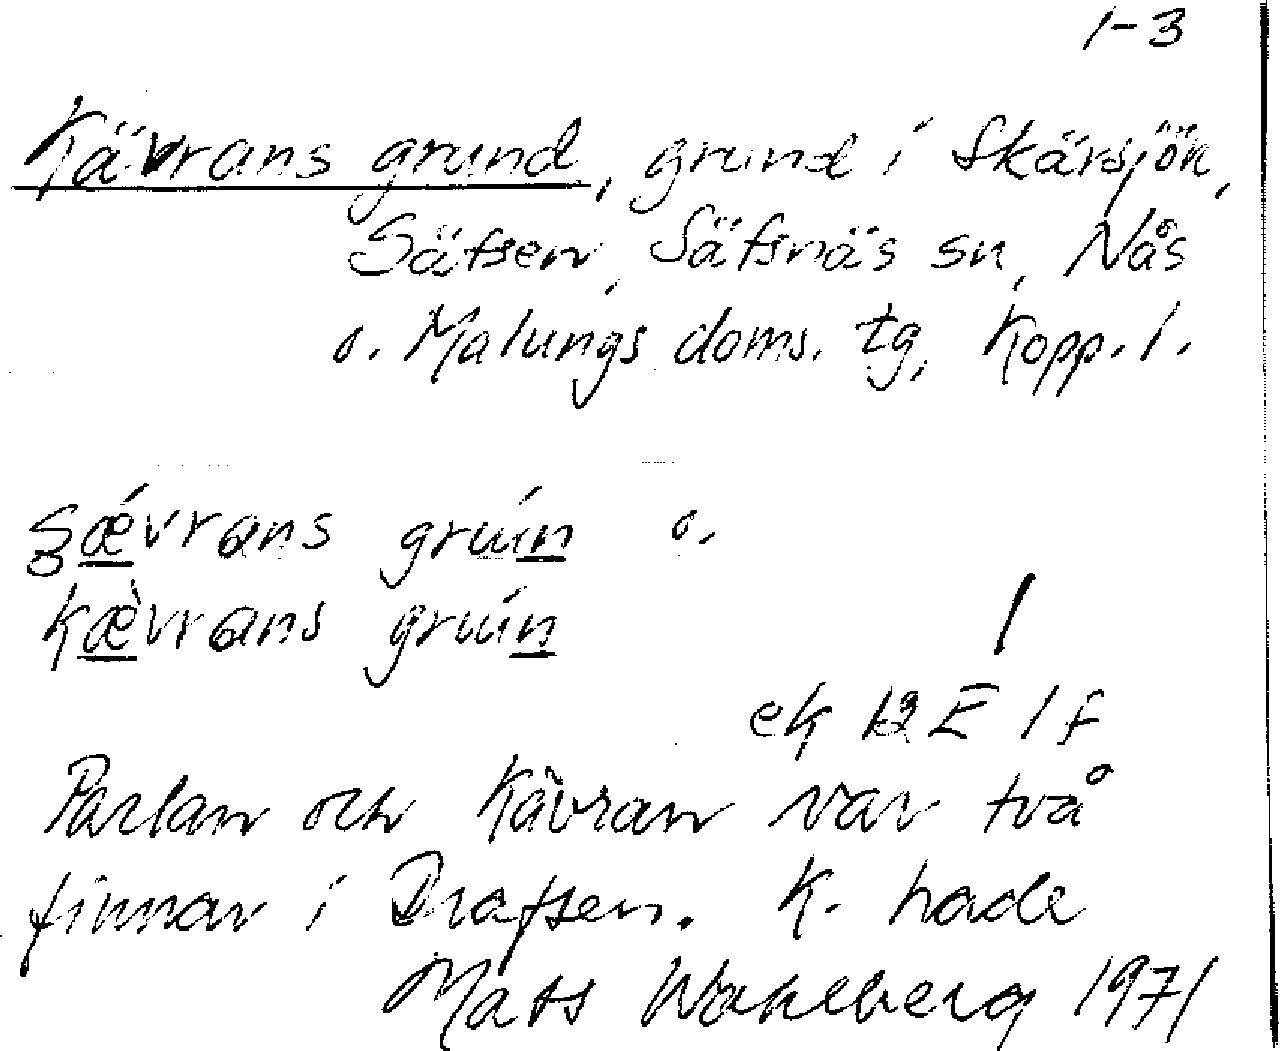 1-3
Kävrans grund, grund i Skärsjön,
Säfsen, Säfsnäs sn, Nås
o. Malungs doms. tg, Kopp. l.
kævrans o.
kæ̀vrans
ek 12 E 1 f
och Kävran var två
finnar i Drafsen. K. hade
Mats Wahlberg 1971